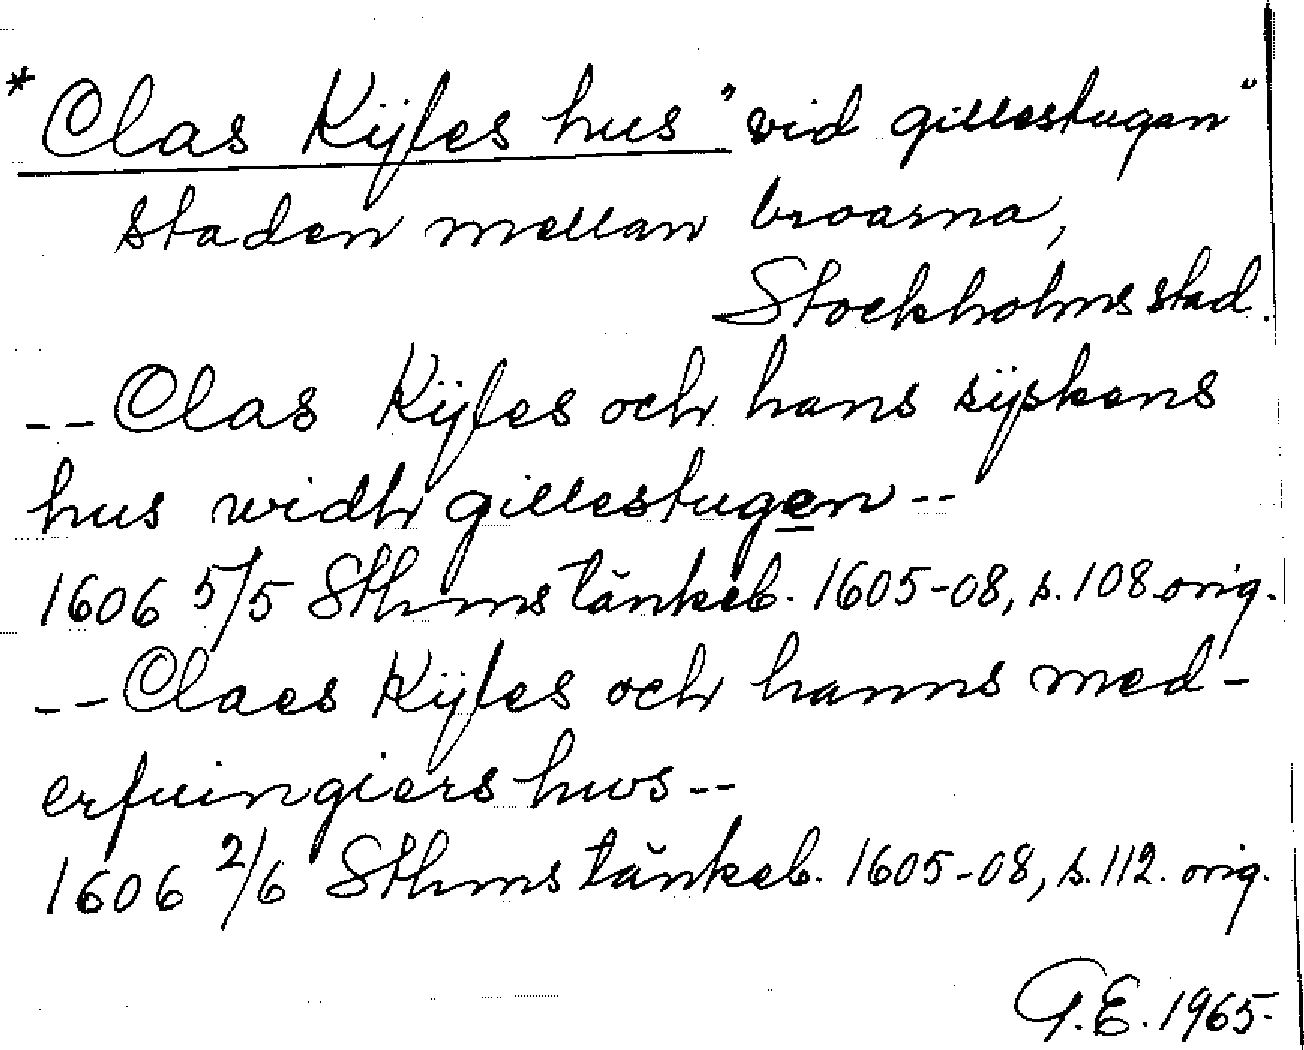 * Clas Kÿles hus "vid gillestugan"
staden mellan broarna,
Stockholms stad.
-- Clas Kÿles och hans sÿskens
hus widh gillestugen --
1606 5/5 Sthms tänkeb. 1605-08, s. 108 orig.
-- Claes Kÿles och hanns med-
erfuingiers hws --
1606 2/6 Sthms tänkeb. 1605-08, s. 112. orig.
G.E. 1965.